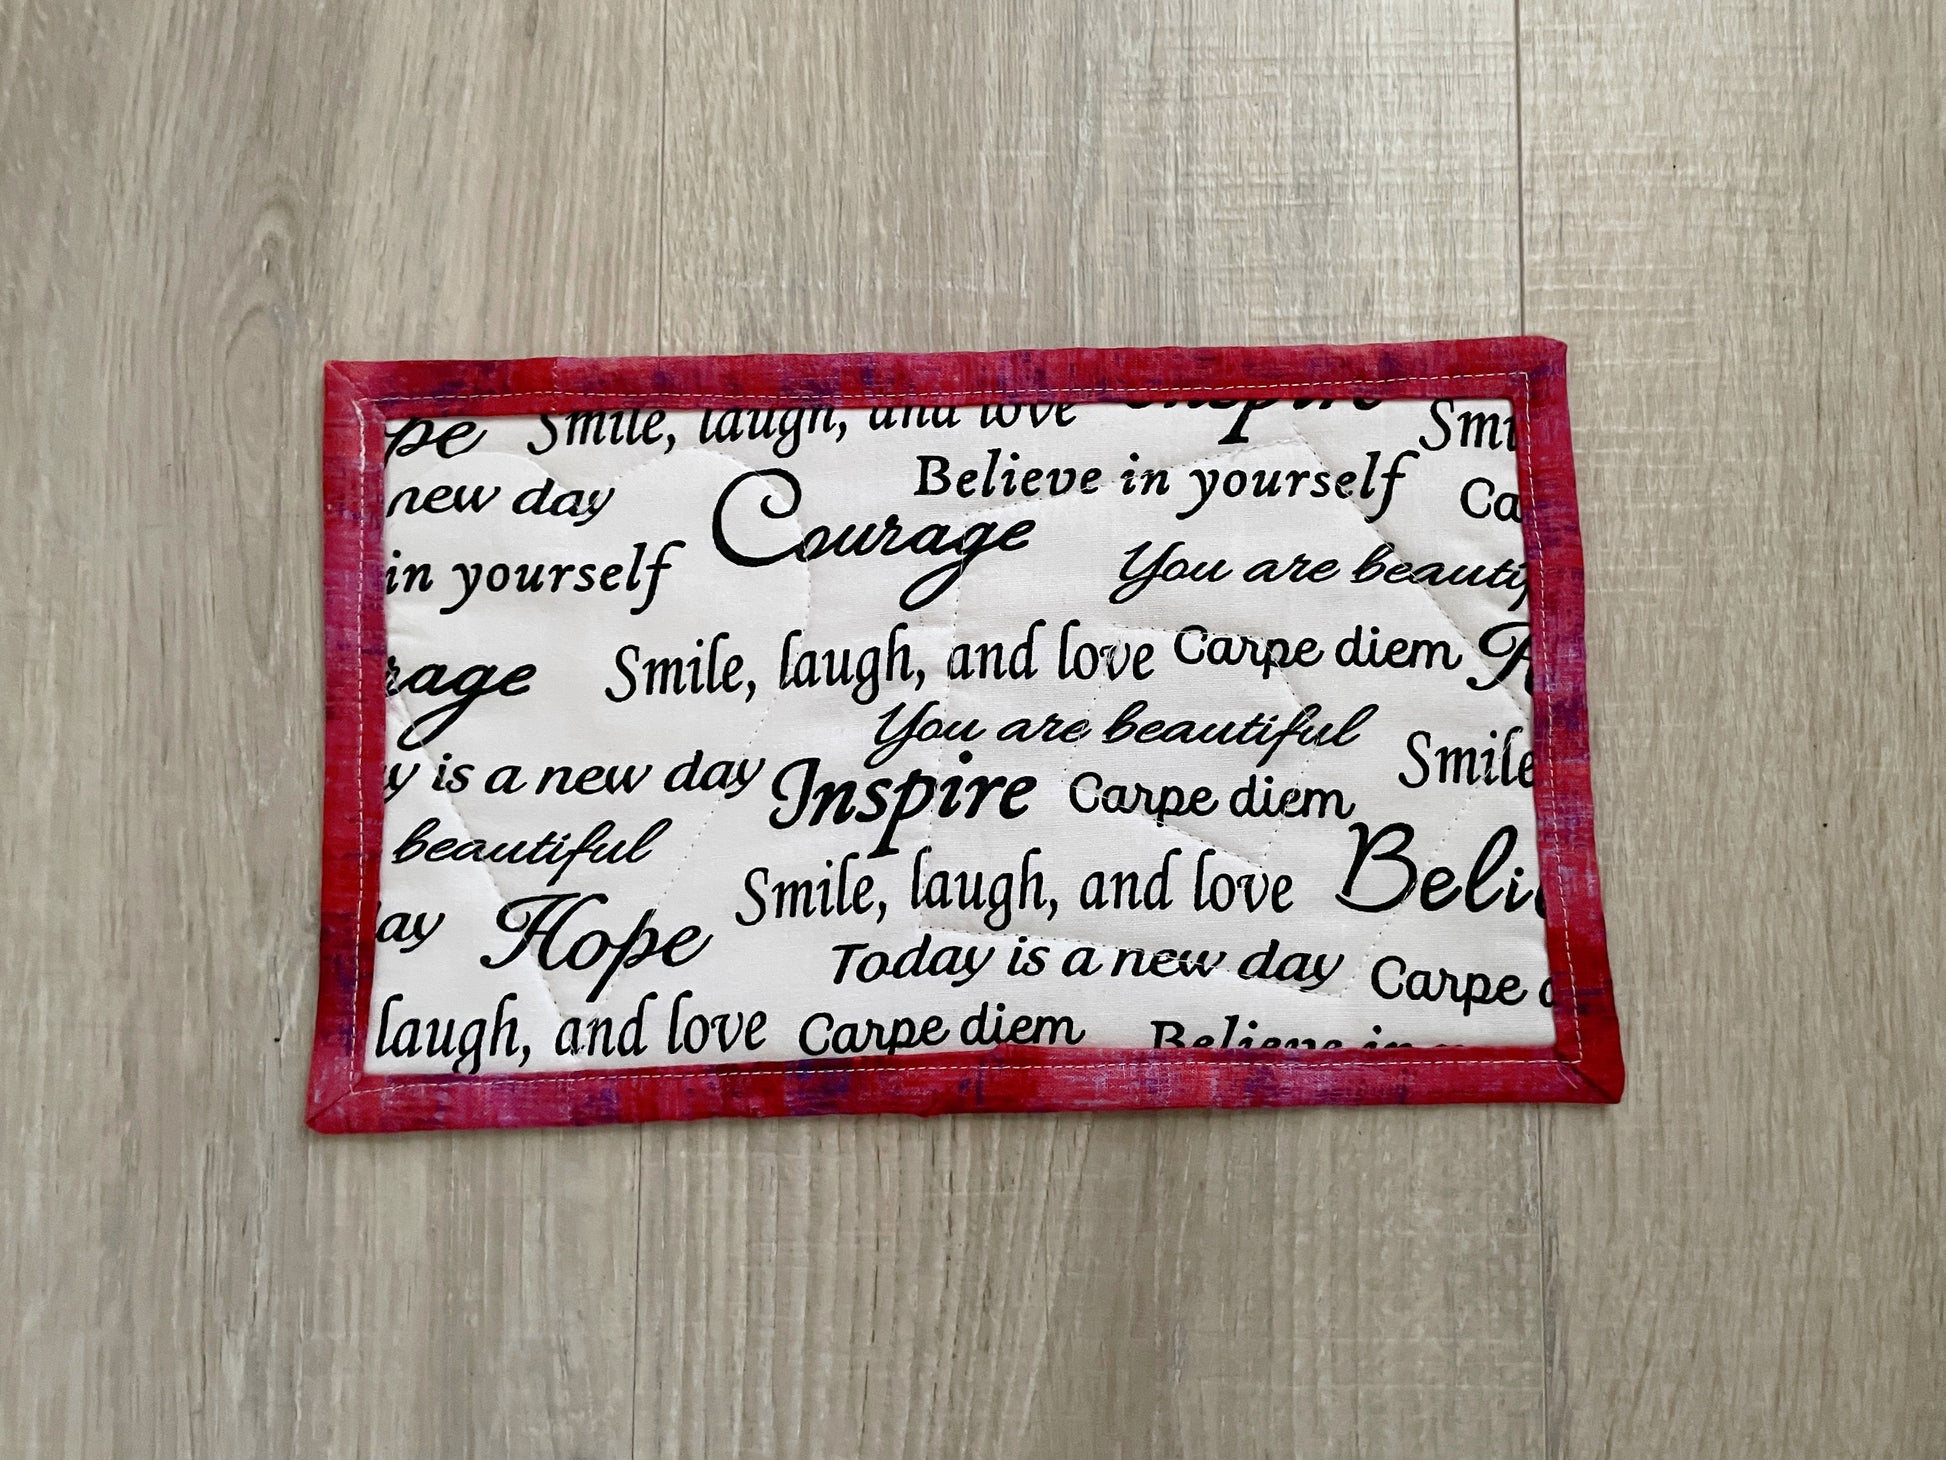 pe Smile, laugh, and love Inspire Smi
Believe in yourself
new day Courage Ca
in yourself You are beautif
rage Smile, laugh, and love Carpe diem
You are beautiful
y is a new day Inspire Carpe diem Smile
beautiful Beli
ay Hope Smile, laugh, and love
Today is a new day Carpe d
laugh, and love Carpe diem Believe in